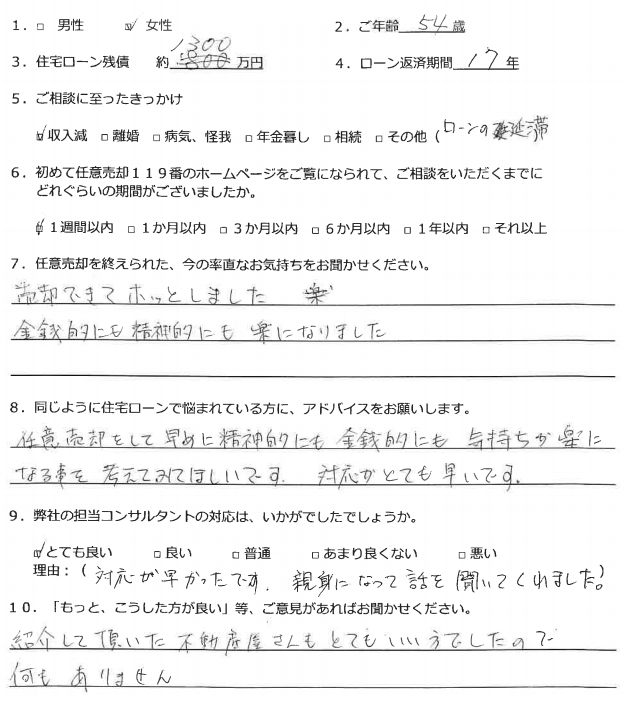 1．□ 男性 ☑ 女性 2．ご年齢 54 歳
1300
3．住宅ローン残債 約 800 万円 4．ローン返済期間 17 年
5．ご相談に至ったきっかけ
☑収入減 □離婚 □病気、怪我 □年金暮し □相続 □その他（ローンの延滞
6．初めて任意売却１１９番のホームページをご覧になられて、ご相談をいただくまでに
どれぐらいの期間がございましたか。
☑１週間以内 □１か月以内 □３か月以内 □６か月以内 □１年以内 □それ以上
7．任意売却を終えられた、今の率直なお気持ちをお聞かせください。
売却できてホッとしました 楽
金銭的にも精神的にも 楽になりました
8．同じように住宅ローンで悩まれている方に、アドバイスをお願いします。
任意売却をして早めに精神的にも金銭的にも 気持ちが楽に
なる事を考えてみてほしいです. 対応がとても早いです.
9．弊社の担当コンサルタントの対応は、いかがでしたでしょうか。
☑とても良い □良い □普通 □あまり良くない □悪い
理由：（対応が早かったです. 親身になって話を聞いてくれました）
１０．「もっと、こうした方が良い」等、ご意見があればお聞かせください。
紹介して頂いた不動産屋さんもとてもいい方でしたので
何もありません